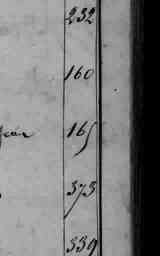 232
160
165
373
339